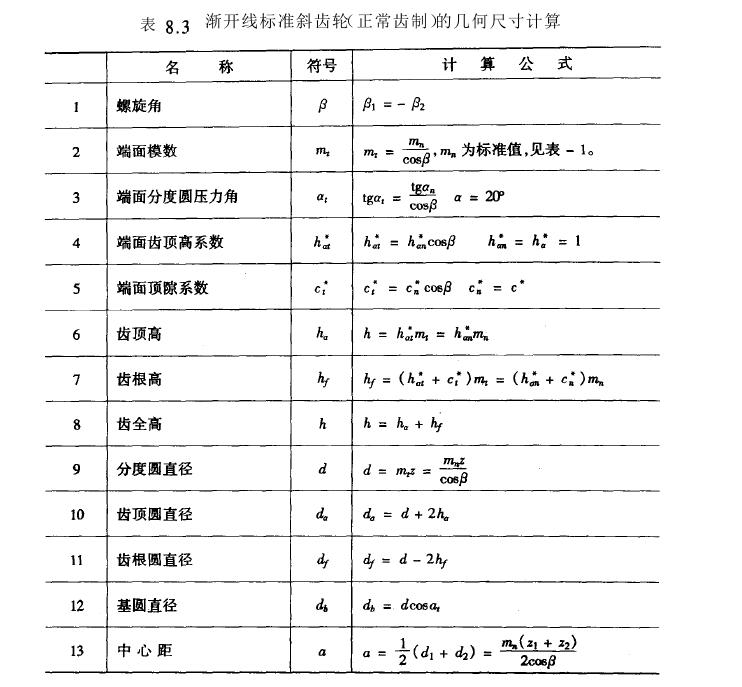 表 8.3 渐开线标准斜齿轮(正常齿制)的几何尺寸计算
名 称 符号 计 算 公 式
1 螺旋角 β β₁ = - β₂
2 端面模数 mₜ mₜ = mₙ/cosβ, mₙ 为标准值,见表 - 1。
3 端面分度圆压力角 αₜ tgαₜ = tgαₙ/cosβ α = 20°
4 端面齿顶高系数 h*at h*at = h*an cosβ h*an = h*a = 1
5 端面顶隙系数 c*t c*t = c*n cosβ c*n = c*
6 齿顶高 ha h = h*at mt = h*an mn
7 齿根高 hf hf = (h*at + c*t)mt = (h*an + c*n)mn
8 齿全高 h h = ha + hf
9 分度圆直径 d d = mt z = mn z/cosβ
10 齿顶圆直径 da da = d + 2ha
11 齿根圆直径 df df = d - 2hf
12 基圆直径 db db = dcosαt
13 中心距 a a = 1/2(d₁ + d₂) = mn(z₁ + z₂)/2cosβ